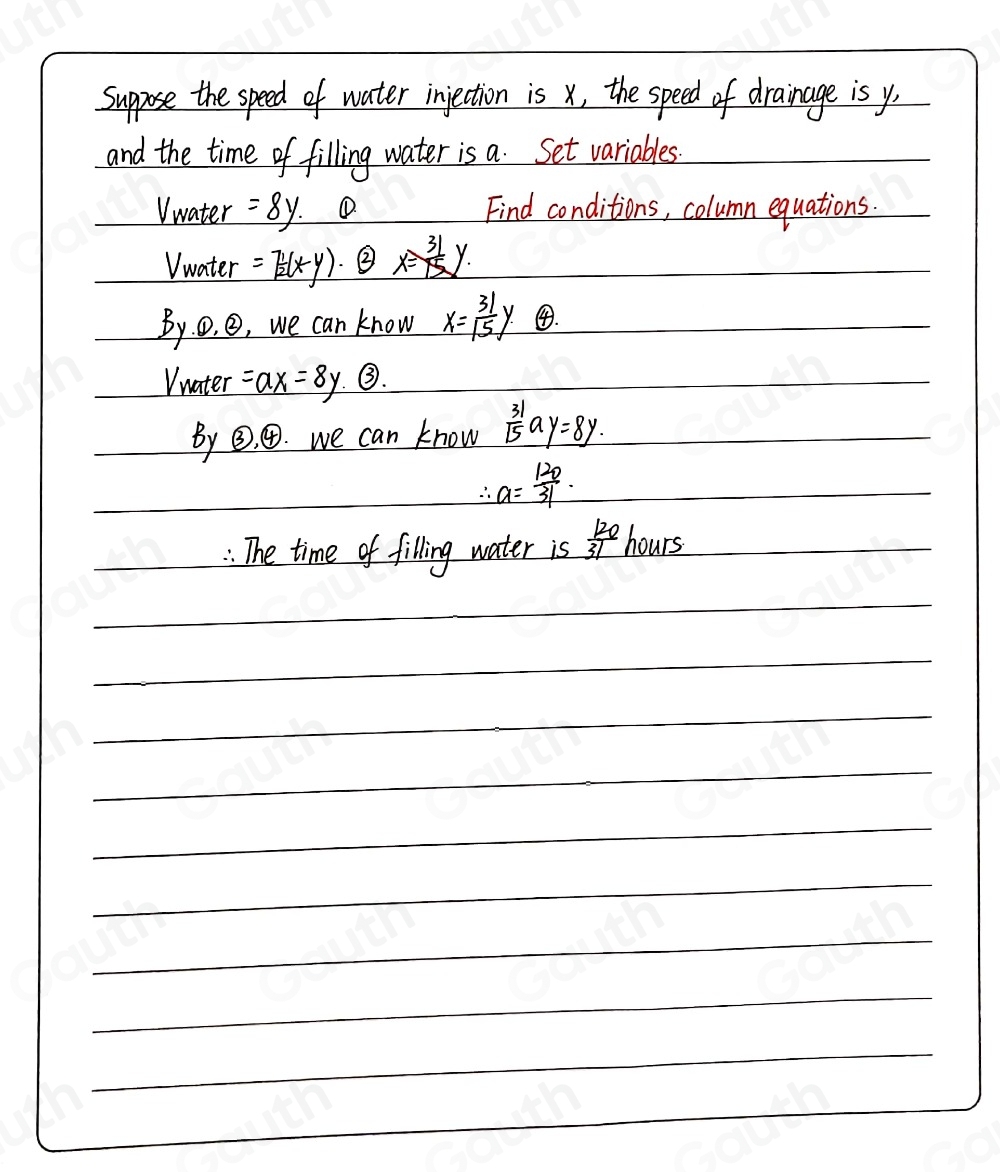 Suppose the speed of water injection is x, the speed of drainage is y,
and the time of filling water is a. Set variables.
Vwater = 8y. ① Find conditions, column equations.
Vwater = 7½(x-y). ② x=31/15 y.
By ①, ②, we can know x=31/15 y ④.
Vwater =ax=8y. ③.
By ③,④. we can know 31/15 ay=8y.
∴a=120/31.
∴The time of filling water is 120/31 hours
Gauth